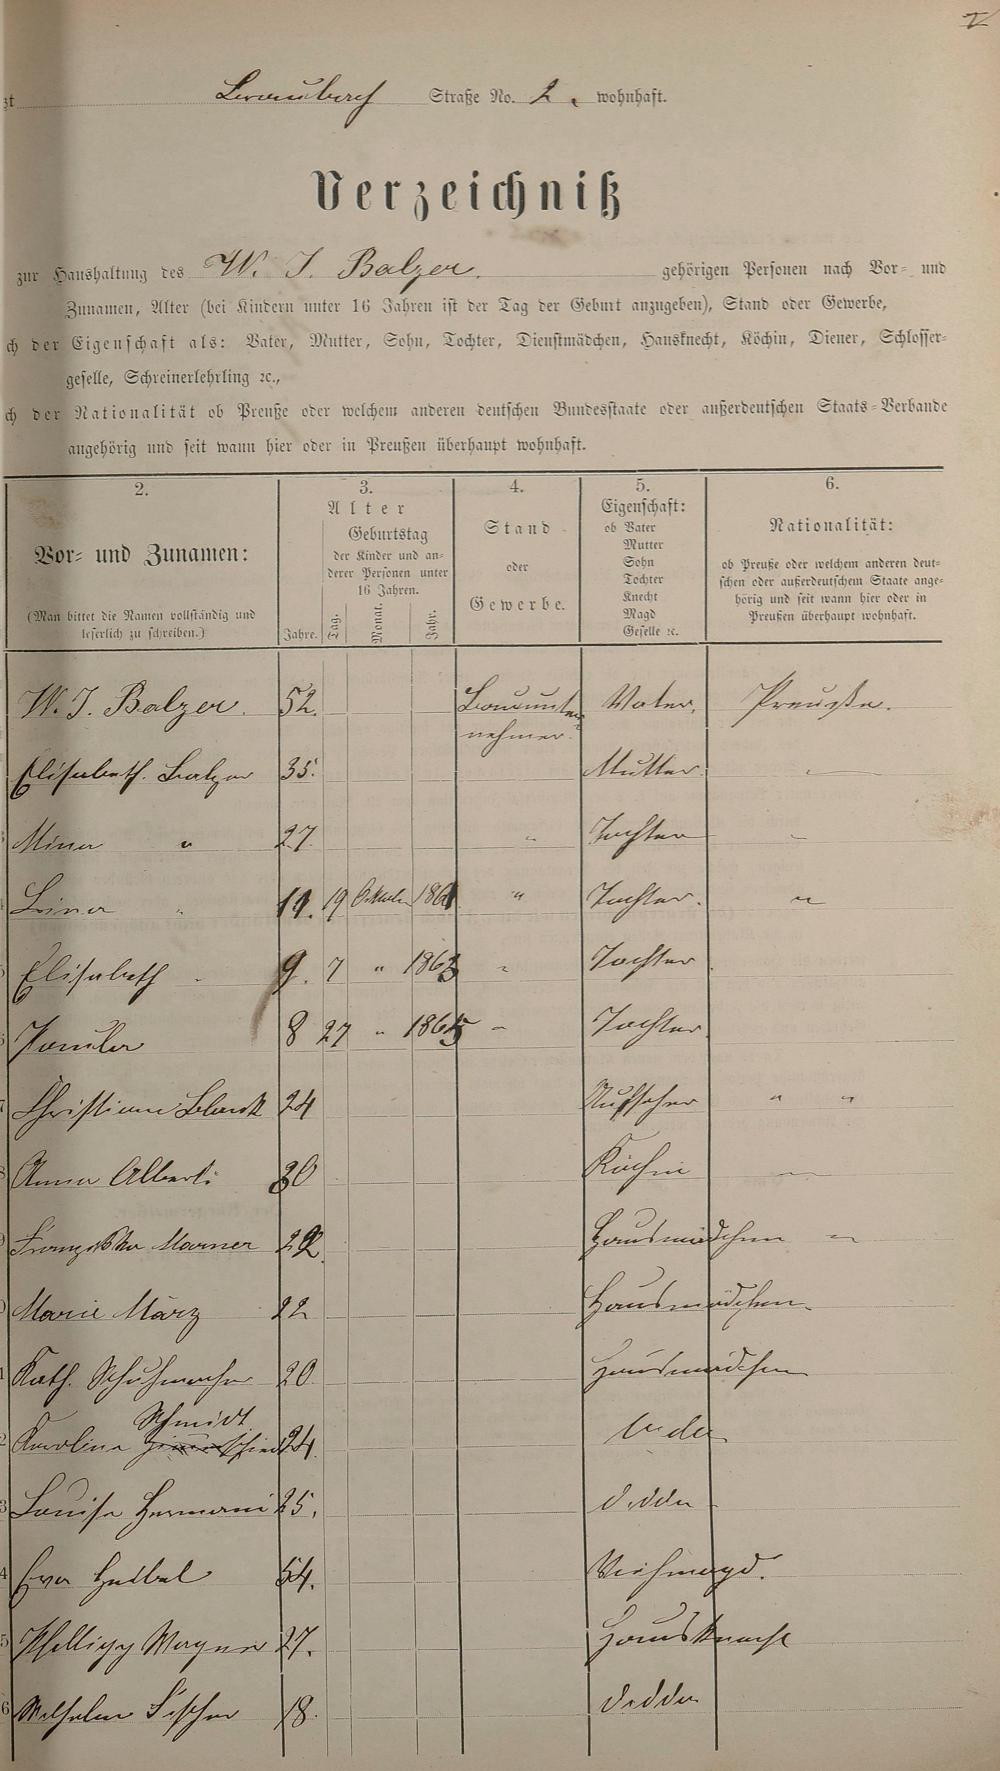 zt Braubach Straße No. 2. wohnhaft.
Verzeichniß
zur Haushaltung des W. J. Balzer. gehörigen Personen nach Vor- und
Zunamen, Alter (bei Kindern unter 16 Jahren ist der Tag der Geburt anzugeben), Stand oder Gewerbe,
ch der Eigenschaft als: Vater, Mutter, Sohn, Tochter, Dienstmädchen, Hausknecht, Köchin, Diener, Schlosser-
geselle, Schreinerlehrling ꝛc.,
ch der Nationalität ob Preuße oder welchem anderen deutschen Bundesstaate oder außerdeutschen Staats-Verbande
angehörig und seit wann hier oder in Preußen überhaupt wohnhaft.
2. 3. 4. 5. 6.
Vor- und Zunamen:
(Man bittet die Namen vollständig und
leserlich zu schreiben.)
Alter
Geburtstag
der Kinder und an-
derer Personen unter
16 Jahren.
Jahre. Tag. Monat. Jahr.
Stand
oder
Gewerbe.
Eigenschaft:
ob Vater
Mutter
Sohn
Tochter
Knecht
Magd
Geselle ꝛc.
Nationalität:
ob Preuße oder welchem anderen deut-
schen oder außerdeutschem Staate ange-
hörig und seit wann hier oder in
Preußen überhaupt wohnhaft.
W. J. Balzer. 52. Bauunter- Vater. Preuße.
nehmer.
Elisabeth. Balzer 35. Mutter. "
Mina " 27. " Tochter "
Lina " 11. 19 Oktober 1861 " Tochter. "
Elisabeth " 9. 7 " 1863 " Tochter
Paula 8 27 " 1865 " Tochter
Christian Blank 24 " "
Anna Alberti 30 Köchin "
Franziska Marner 22 Hausmädchen "
Marie März 22 Hausmädchen.
Kath. Schuhmacher 20 Hausmädchen
Schmidt
Karolina 24.
Louise Hermani 25. ditto
Eva 54. Viehmagd.
Phillipp Wagner 27. Hausknecht
Wilhelm Fischer 18. ditto